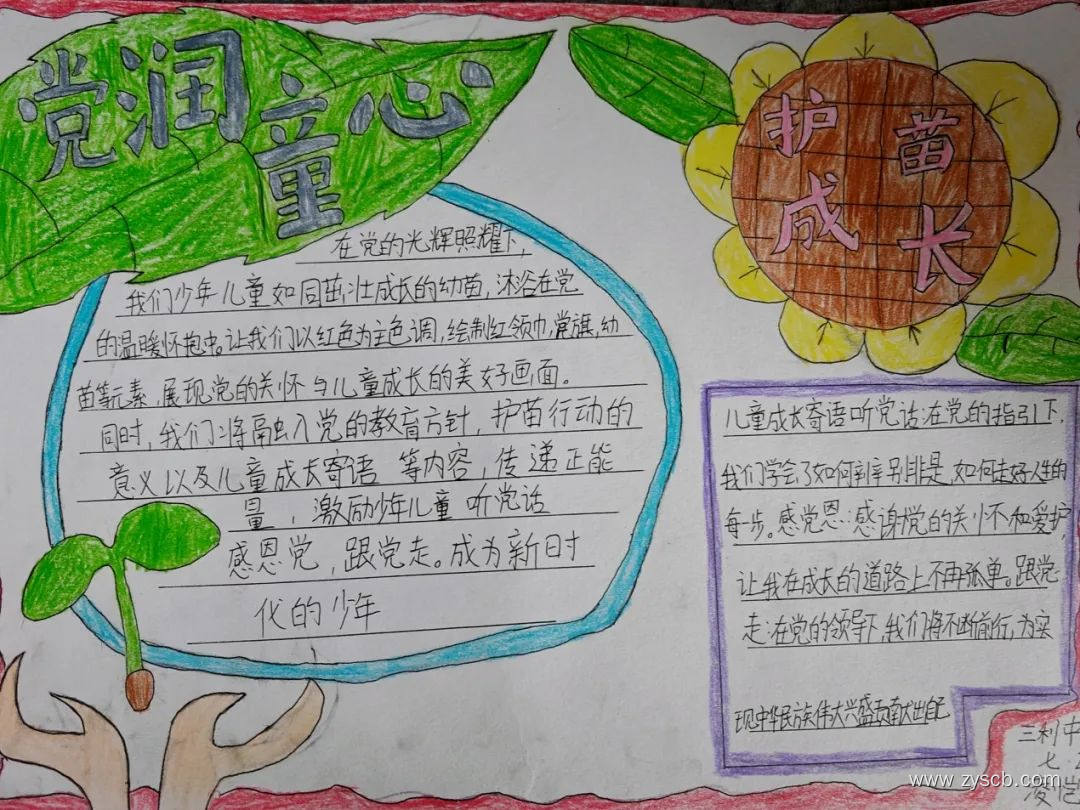 党润童心
护苗
成长
在党的光辉照耀下，
我们少年儿童如同茁壮成长的幼苗，沐浴在党
的温暖怀抱中。让我们以红色为主色调，绘制红领巾，党旗，幼
苗等元素，展现党的关怀与儿童成长的美好画面。
同时，我们将融入党的教育方针，护苗行动的
意义以及儿童成长寄语 等内容，传递正能
量，激励少年儿童 听党话
感恩党，跟党走。成为新时
代的少年
儿童成长寄语听党话：在党的指引下，
我们学会了如何辨别是非，如何走好人生的
每一步。感党恩：感谢党的关怀和爱护，
让我在成长的道路上不再孤单。跟党
走：在党的领导下，我们将不断前行，为实
现中华民族伟大兴盛贡献出自己
三利中
七
www.zyscb.com